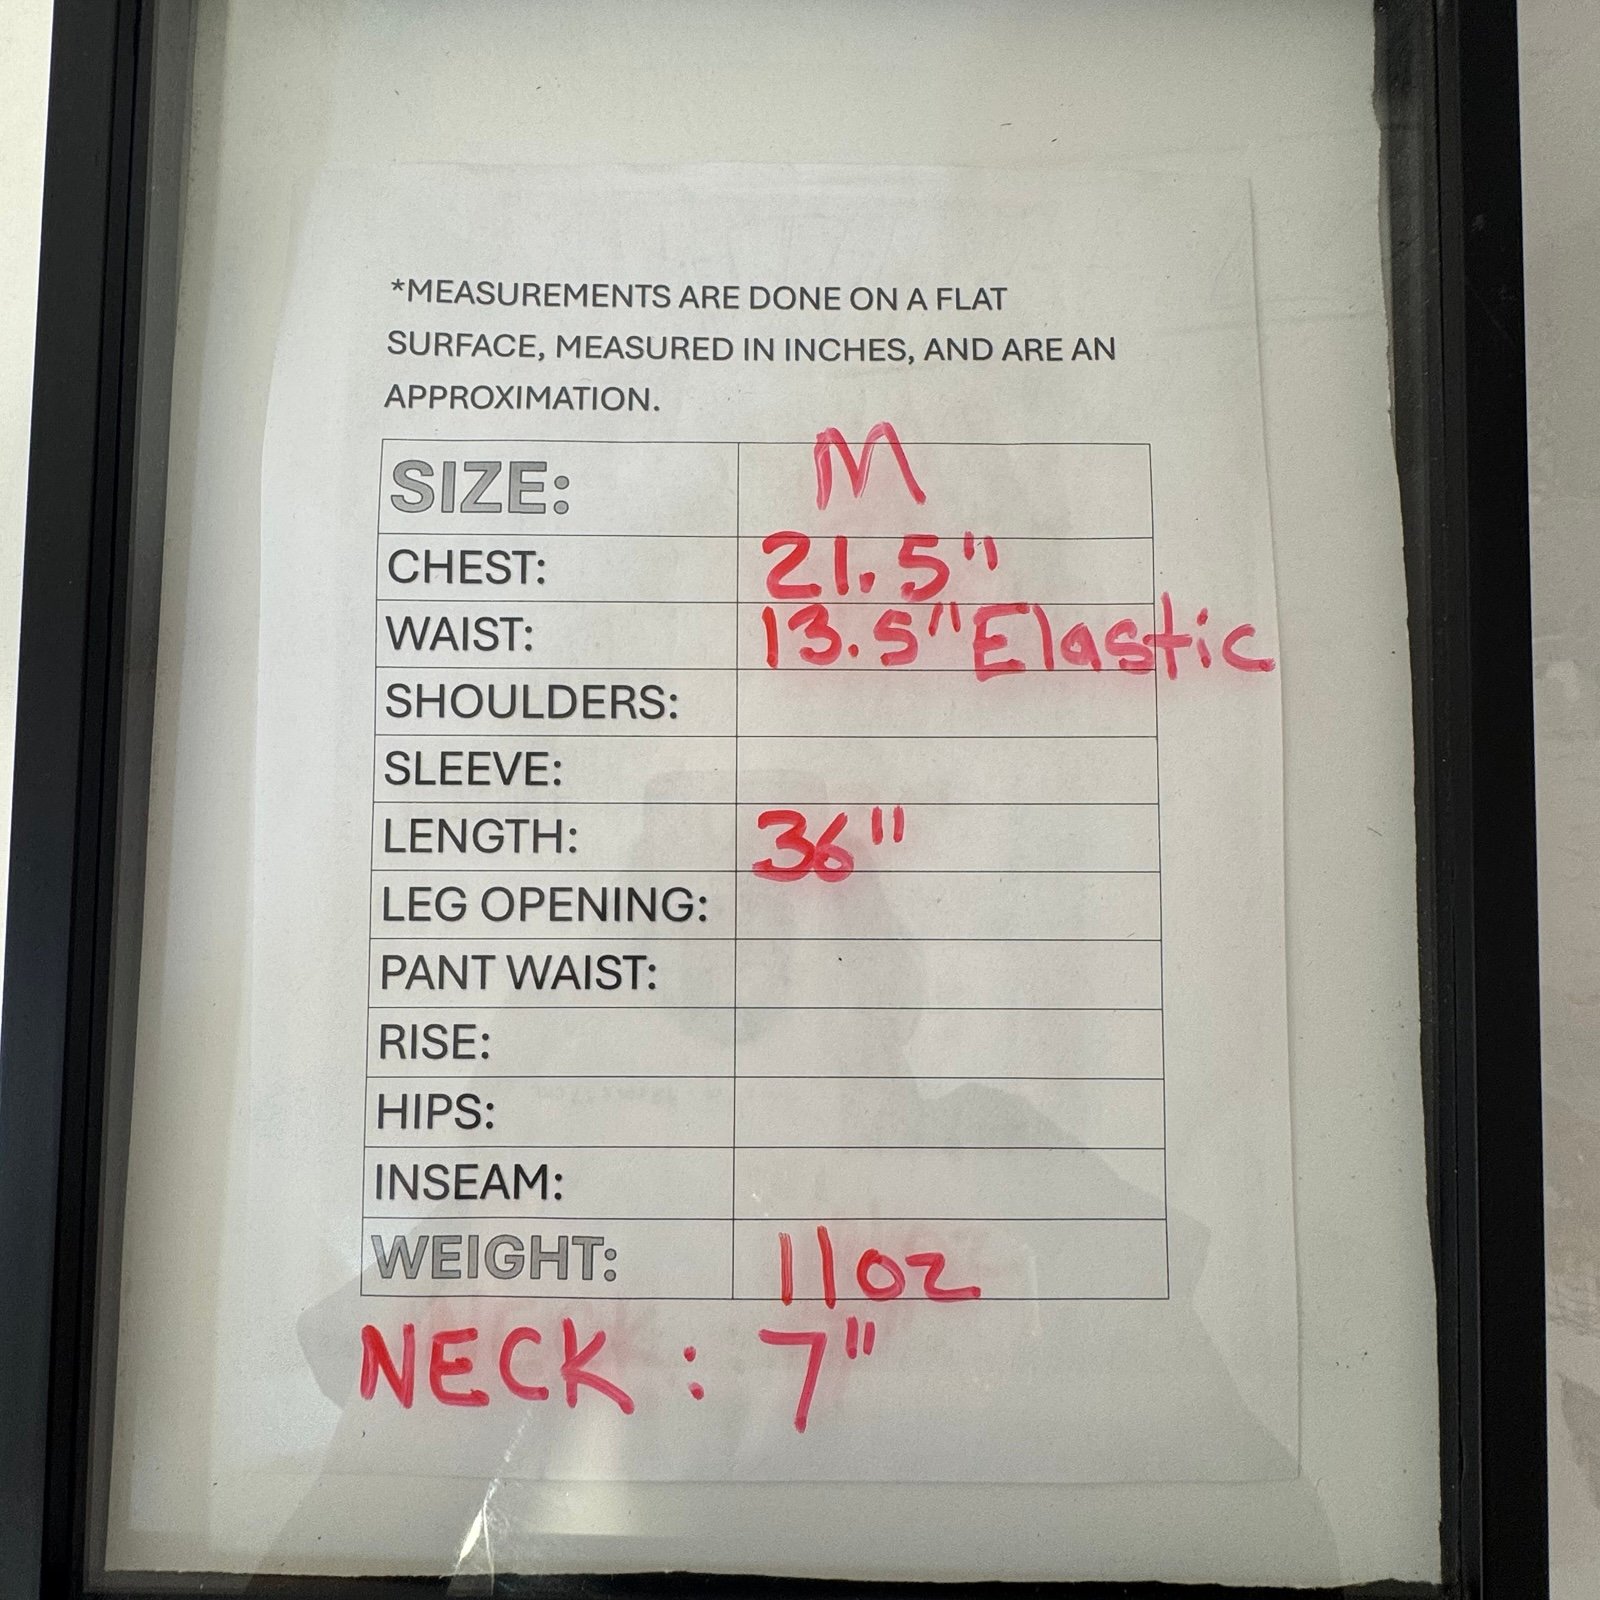 *MEASUREMENTS ARE DONE ON A FLAT
SURFACE, MEASURED IN INCHES, AND ARE AN
APPROXIMATION.
SIZE: M
CHEST: 21.5"
WAIST: 13.5" Elastic
SHOULDERS:
SLEEVE:
LENGTH: 36"
LEG OPENING:
PANT WAIST:
RISE:
HIPS:
INSEAM:
WEIGHT: 11oz
NECK: 7"